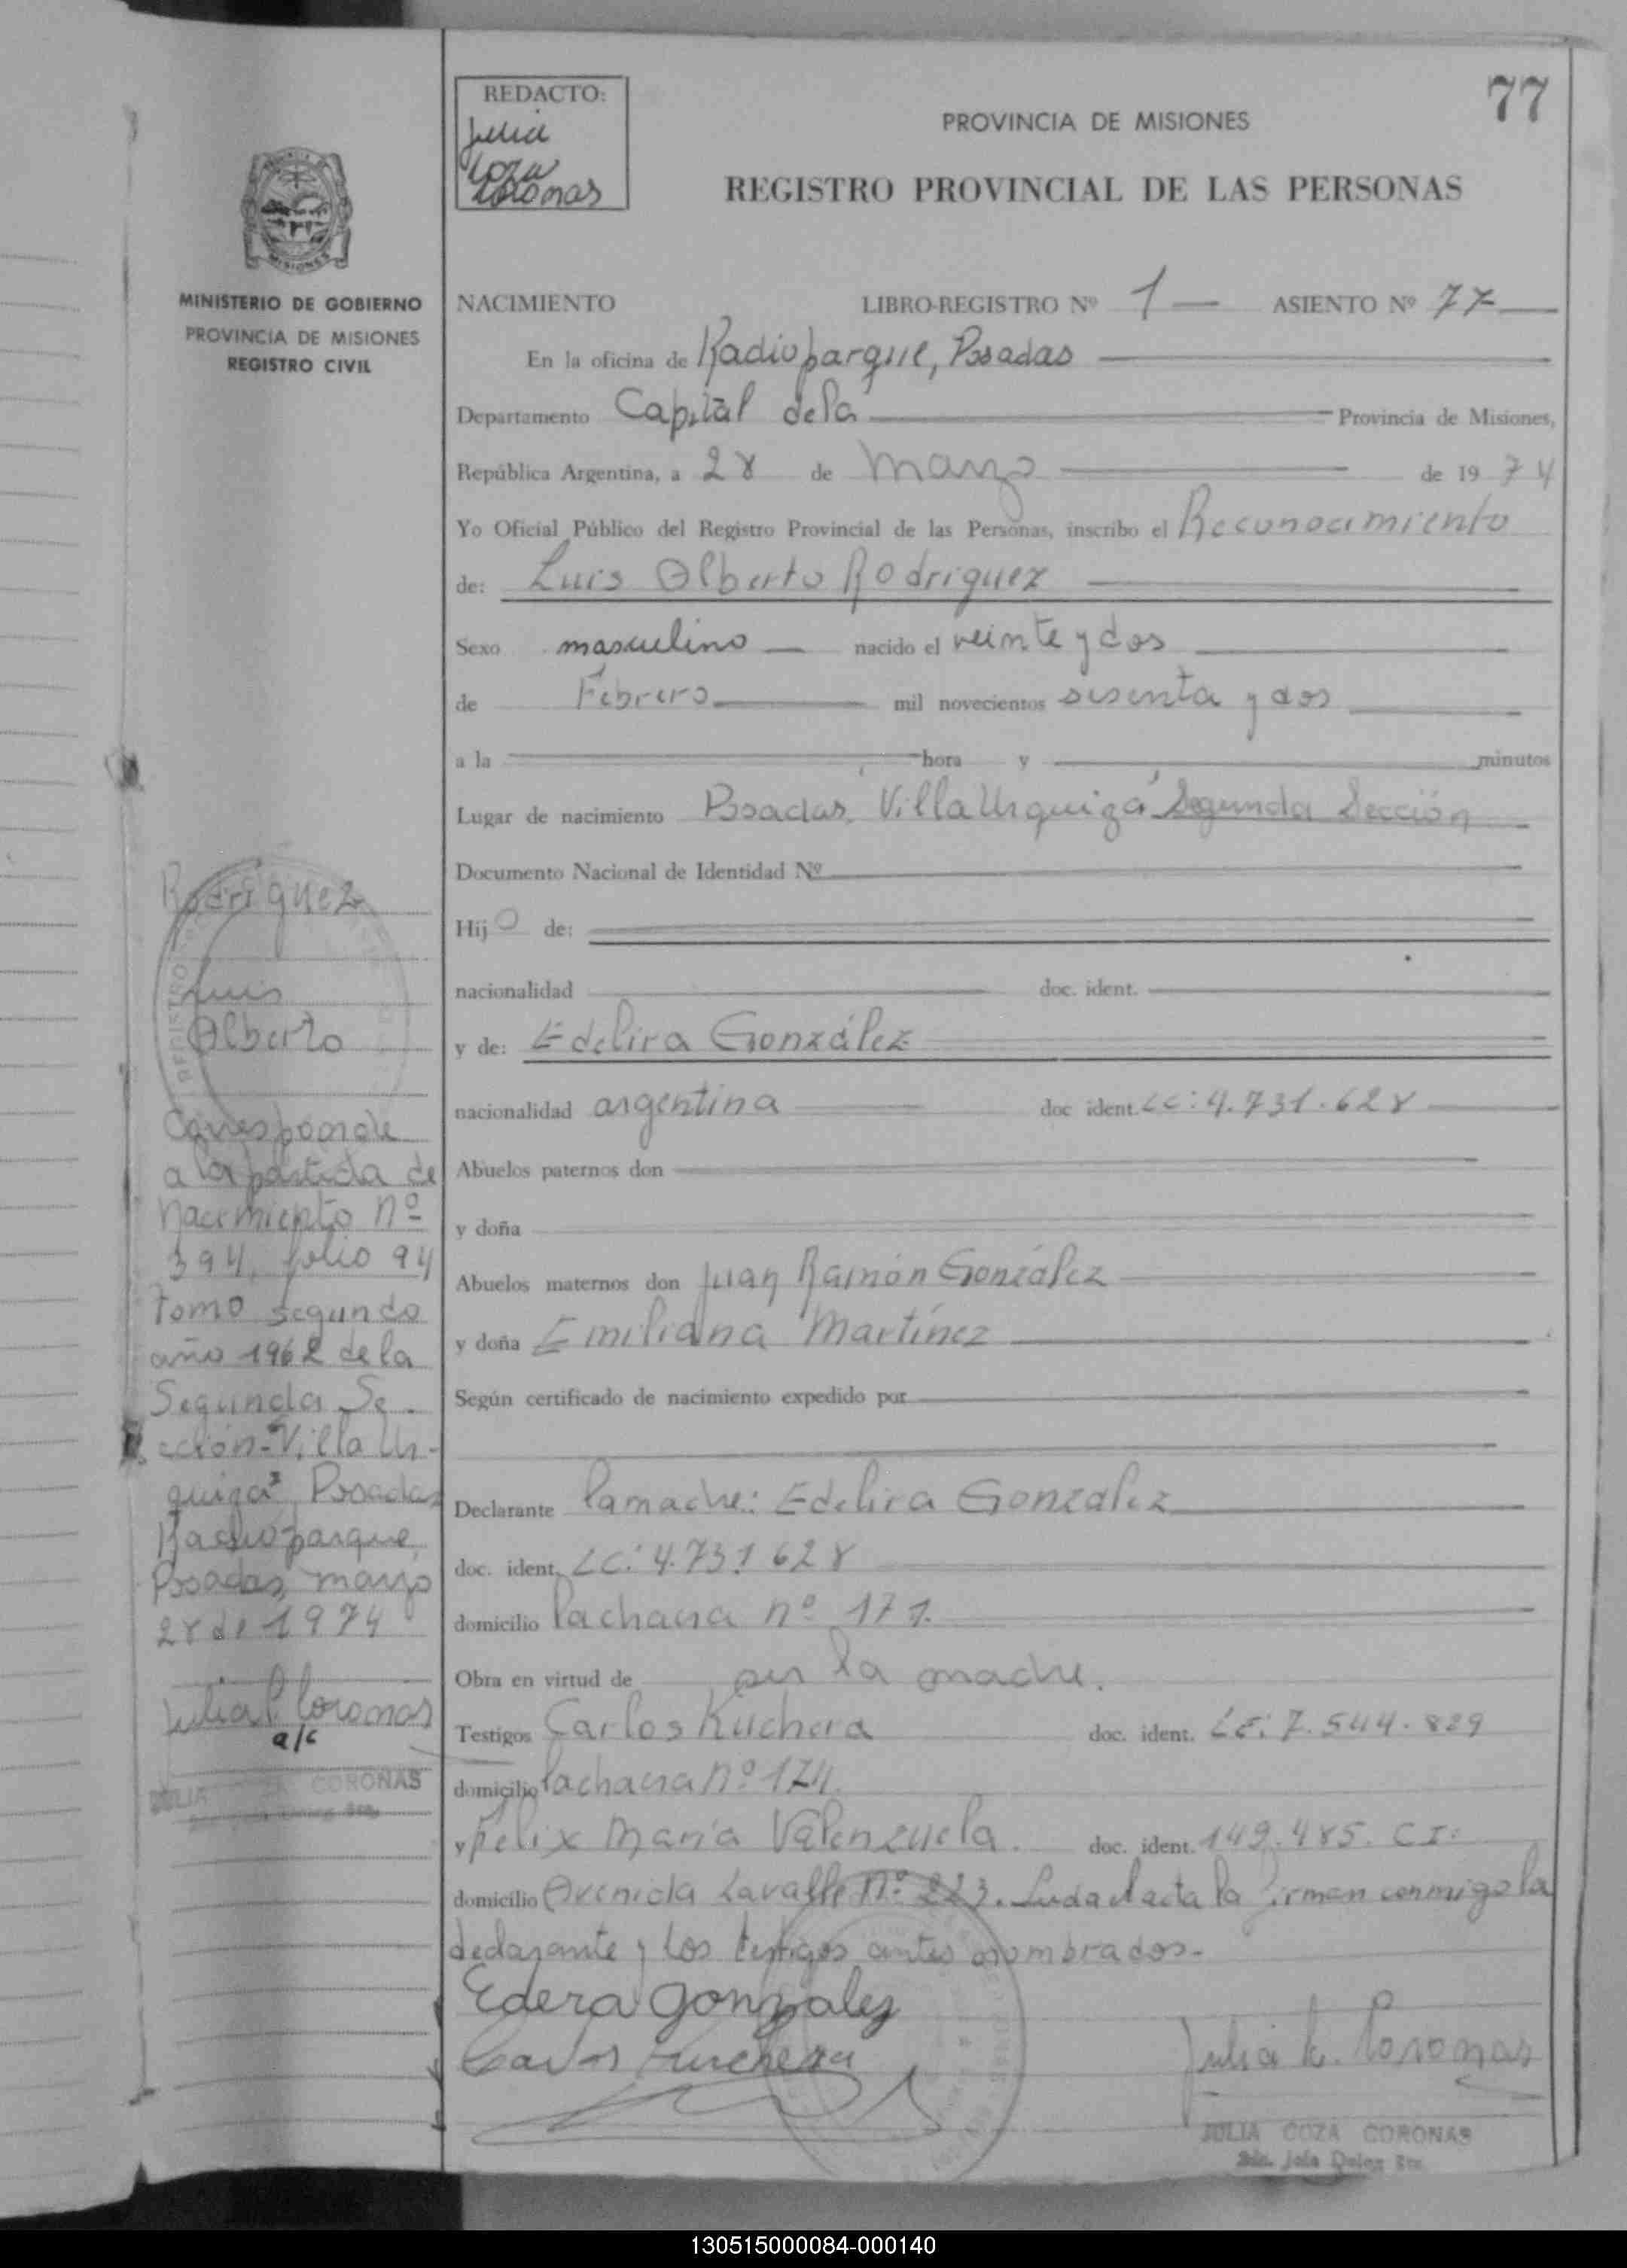 77
REDACTO:
Julia
Coza
Coronas
PROVINCIA DE MISIONES
REGISTRO PROVINCIAL DE LAS PERSONAS
MINISTERIO DE GOBIERNO
PROVINCIA DE MISIONES
REGISTRO CIVIL
NACIMIENTO LIBRO-REGISTRO Nº 1 ASIENTO Nº 77
En la oficina de Radioparque, Posadas
Departamento Capital de la Provincia de Misiones,
República Argentina, a 28 de marzo de 1974
Yo Oficial Público del Registro Provincial de las Personas, inscribo el Reconocimiento
de: Luis Alberto Rodriguez
Sexo masculino nacido el veinte y dos
de Febrero mil novecientos sesenta y dos
a la hora y minutos
Lugar de nacimiento Posadas, Villa Urquiza Segunda Sección
Documento Nacional de Identidad Nº
Hijo de:
nacionalidad doc. ident.
y de: Edelira González
nacionalidad argentina doc ident. LC: 4.731.628
Abuelos paternos don
y doña
Abuelos maternos don Juan Ramón González
y doña Emiliana Martínez
Según certificado de nacimiento expedido por
Declarante la madre: Edelira Gonzalez
doc. ident. LC: 4.731 628
domicilio la chacra nº 171.
Obra en virtud de ser la madre.
Testigos Carlos Kuchera doc. ident. LE: 7.544.829
domicilio la chacra nº 174.
y Felix María Valenzuela. doc. ident. 149.485. CI.
domicilio Avenida Lavalle Nº 223. Leida el acta la firman conmigo la
declarante y los testigos antes nombrados.
Edera Gonzalez
Carlos Kuchera
Julia C. Coronas
JULIA COZA CORONAS
Rodriguez
Luis
Alberto
Corresponde
a la partida de
nacimiento nº
394, folio 94
Tomo segundo
año 1962 de la
Segunda Se-
cción-Villa Ur-
quiza Posadas
Radioparque,
Posadas, marzo
28 de 1974
Julia C. Coronas
a/c
JULIA COZA CORONAS
130515000084-000140